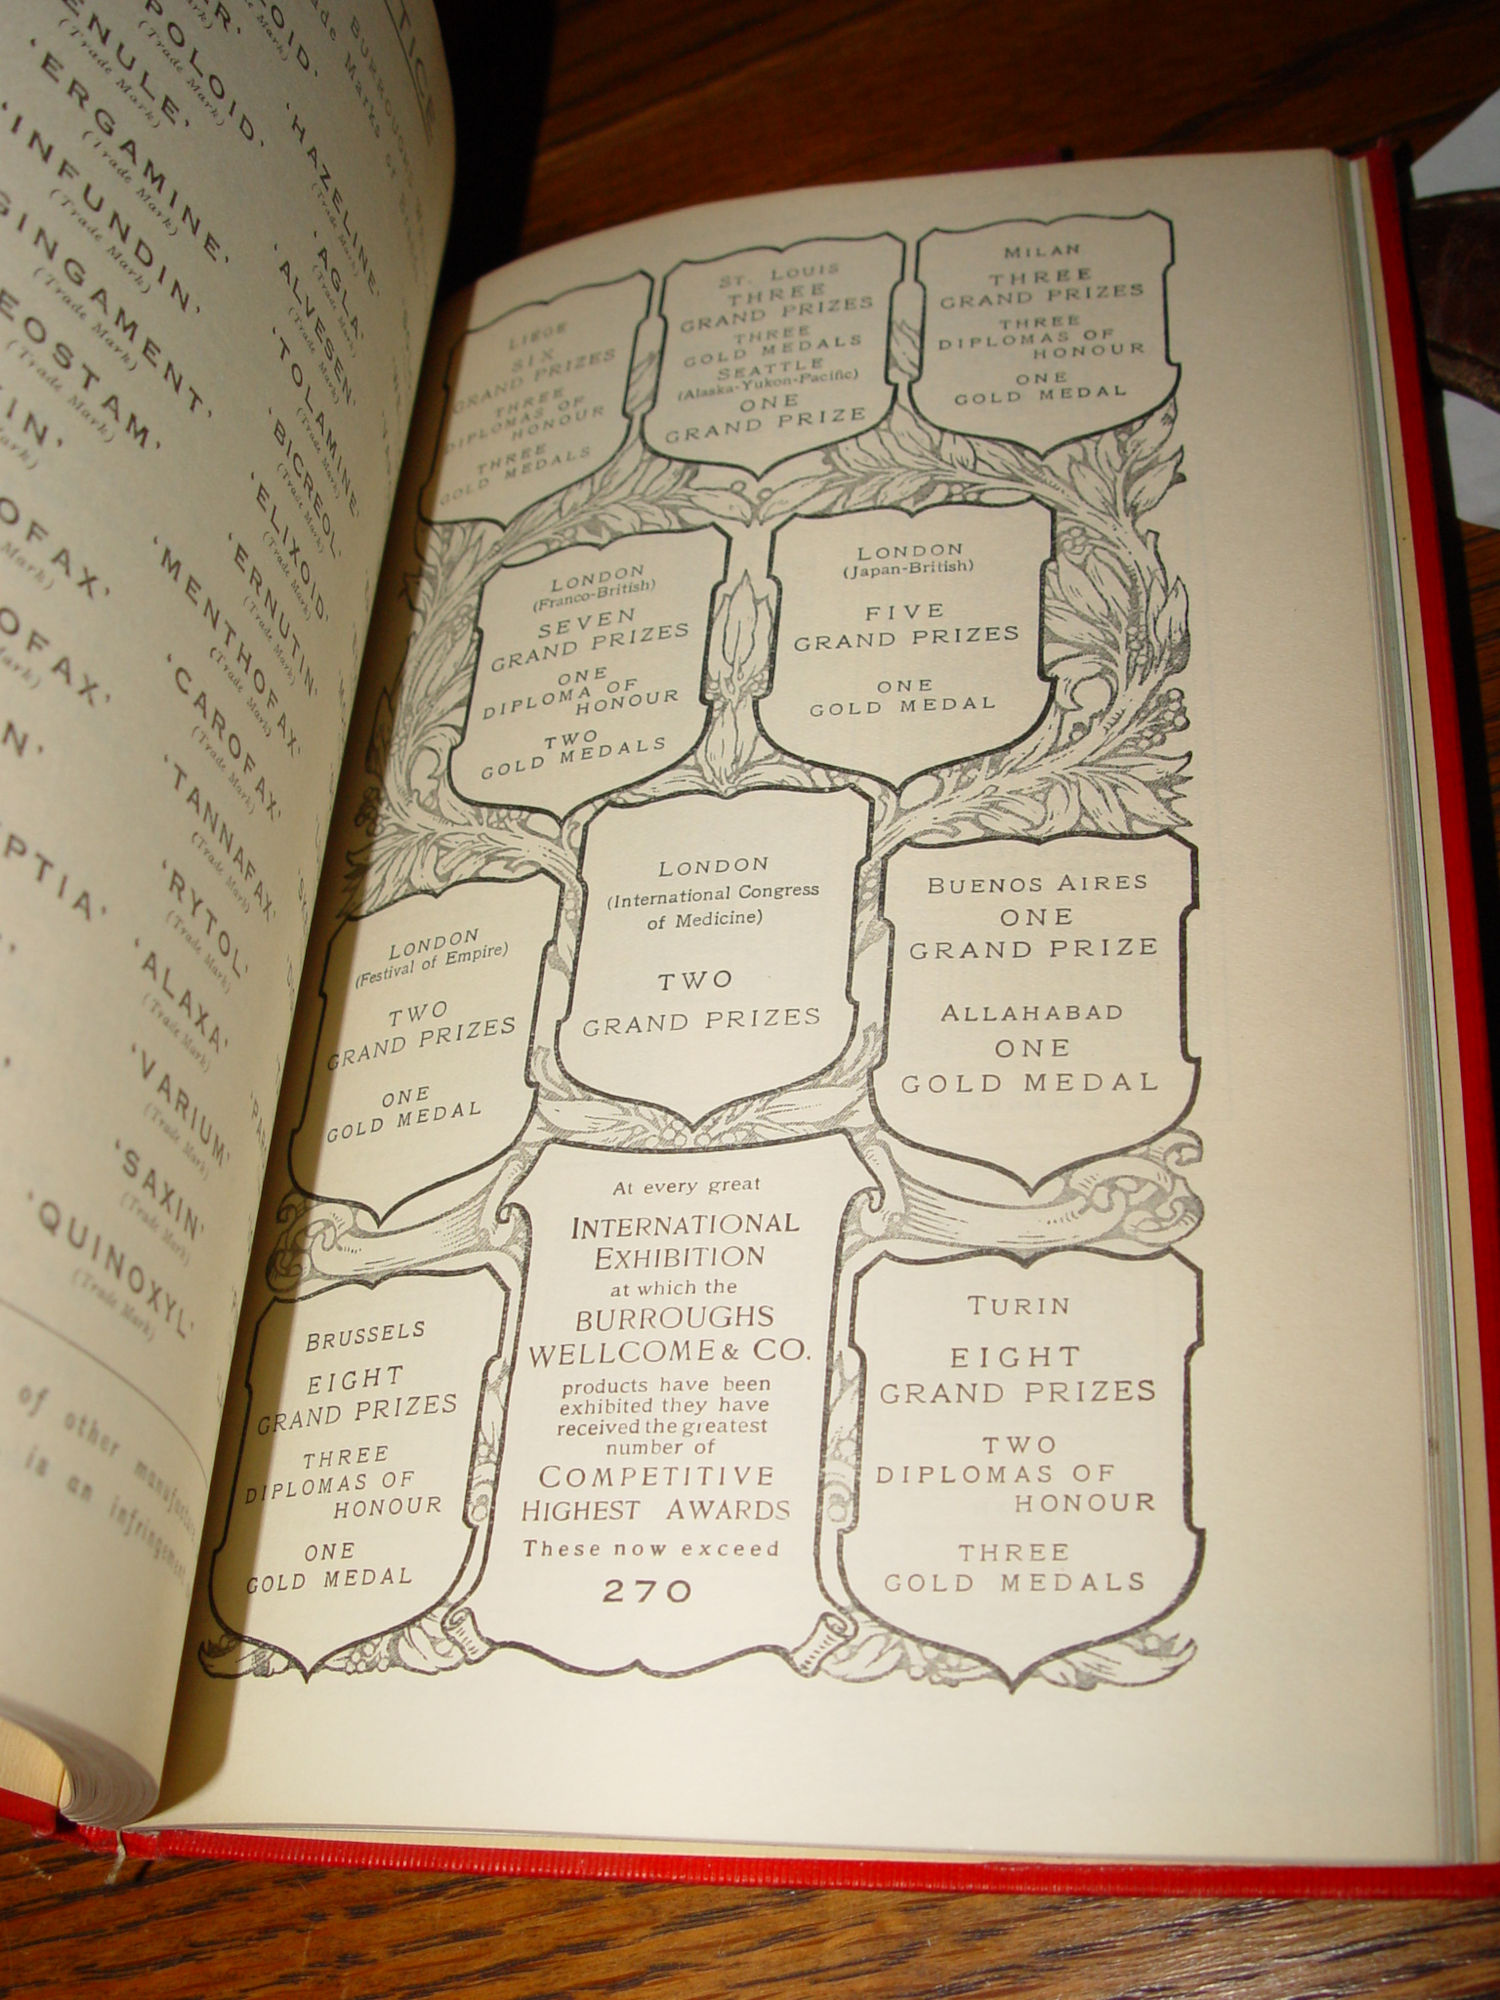 TICE
BURROUGHS
Trade Marks of
OLOID'
POLOID'
(Trade Mark)
ENULE'
(Trade Mark)
'HAZELINE'
(Trade Mark)
'ERGAMINE'
(Trade Mark)
'AGLA'
(Trade Mark)
'INFUNDIN'
(Trade Mark)
'ALVESEN'
(Trade Mark)
GINGAMENT'
(Trade Mark)
'TOLAMINE'
(Trade Mark)
EOSTAM'
(Trade Mark)
'BICREOL'
(Trade Mark)
IN'
Mark)
'ELIXOID'
(Trade Mark)
'ERNUTIN'
(Trade Mark)
OFAX'
Mark)
'MENTHOFAX'
(Trade Mark)
OFAX'
Mark)
'CAROFAX'
(Trade Mark)
N'
'TANNAFAX'
(Trade Mark)
PTIA'
'RYTOL'
(Trade Mark)
'ALAXA'
(Trade Mark)
'VARIUM'
(Trade Mark)
'SAXIN'
(Trade Mark)
'QUINOXYL'
(Trade Mark)
of other
is an infringement
LIEGE
SIX
GRAND PRIZES
THREE
DIPLOMAS OF
HONOUR
THREE
GOLD MEDALS
ST. LOUIS
THREE
GRAND PRIZES
THREE
GOLD MEDALS
SEATTLE
(Alaska-Yukon-Pacific)
ONE
GRAND PRIZE
MILAN
THREE
GRAND PRIZES
THREE
DIPLOMAS OF
HONOUR
ONE
GOLD MEDAL
LONDON
(Franco-British)
SEVEN
GRAND PRIZES
ONE
DIPLOMA OF
HONOUR
TWO
GOLD MEDALS
LONDON
(Japan-British)
FIVE
GRAND PRIZES
ONE
GOLD MEDAL
LONDON
(Festival of Empire)
TWO
GRAND PRIZES
ONE
GOLD MEDAL
LONDON
(International Congress
of Medicine)
TWO
GRAND PRIZES
BUENOS AIRES
ONE
GRAND PRIZE
ALLAHABAD
ONE
GOLD MEDAL
BRUSSELS
EIGHT
GRAND PRIZES
THREE
DIPLOMAS OF
HONOUR
ONE
GOLD MEDAL
At every great
INTERNATIONAL
EXHIBITION
at which the
BURROUGHS
WELLCOME & CO.
products have been
exhibited they have
received the greatest
number of
COMPETITIVE
HIGHEST AWARDS
These now exceed
270
TURIN
EIGHT
GRAND PRIZES
TWO
DIPLOMAS OF
HONOUR
THREE
GOLD MEDALS